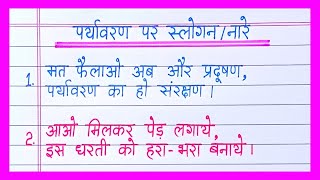 पर्यावरण पर स्लोगन/नारे
1. मत फैलाओ अब और प्रदूषण,
पर्यावरण का हो संरक्षण।
2. आओ मिलकर पेड़ लगाये,
इस धरती को हरा-भरा बनाये।